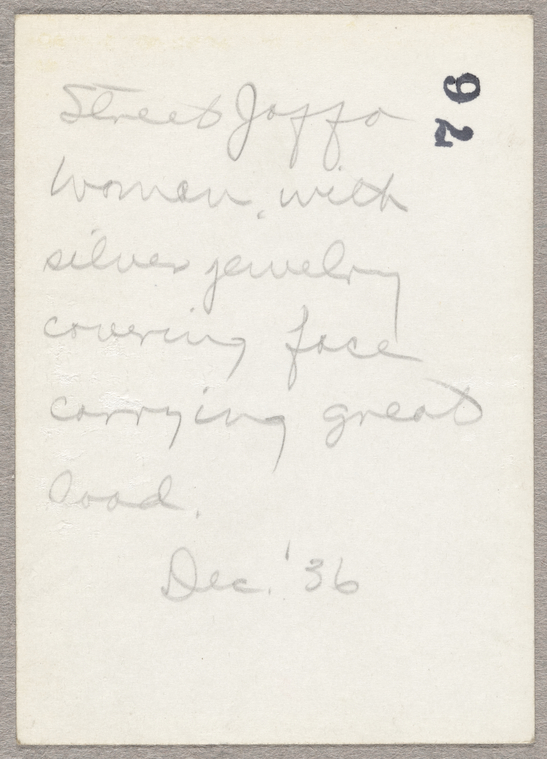 Street Jaffa
Woman, with
silver jewelry
covering face
carrying great
load.
Dec. '36
92